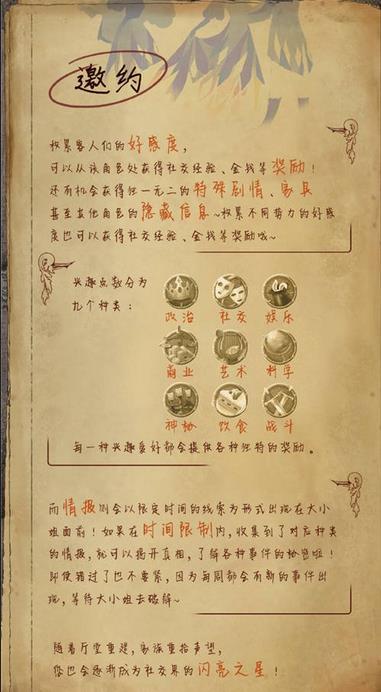 邀约
积累客人们的好感度，
可以从该角色处获得社交经验、金钱等奖励！
还有机会获得独一无二的特殊剧情、家具
甚至其他角色的隐藏信息~积累不同势力的好感
度也可以获得社交经验、金钱等奖励哦~
兴趣点数分为
九个种类：
政治 社交 娱乐
商业 艺术 科学
神秘 饮食 战斗
每一种兴趣爱好都会提供各种独特的奖励。
而情报则会以限定时间的线索为形式出现在大小
姐面前！如果在时间限制内，收集到了对应种类
的情报，就可以揭开真相，了解各种事件的秘密啦！
即使错过了也不要紧，因为每周都会有新的事件出
现，等待大小姐去破解~
随着厅堂重建，家族重拾声望，
您也会逐渐成为社交界的闪亮之星！